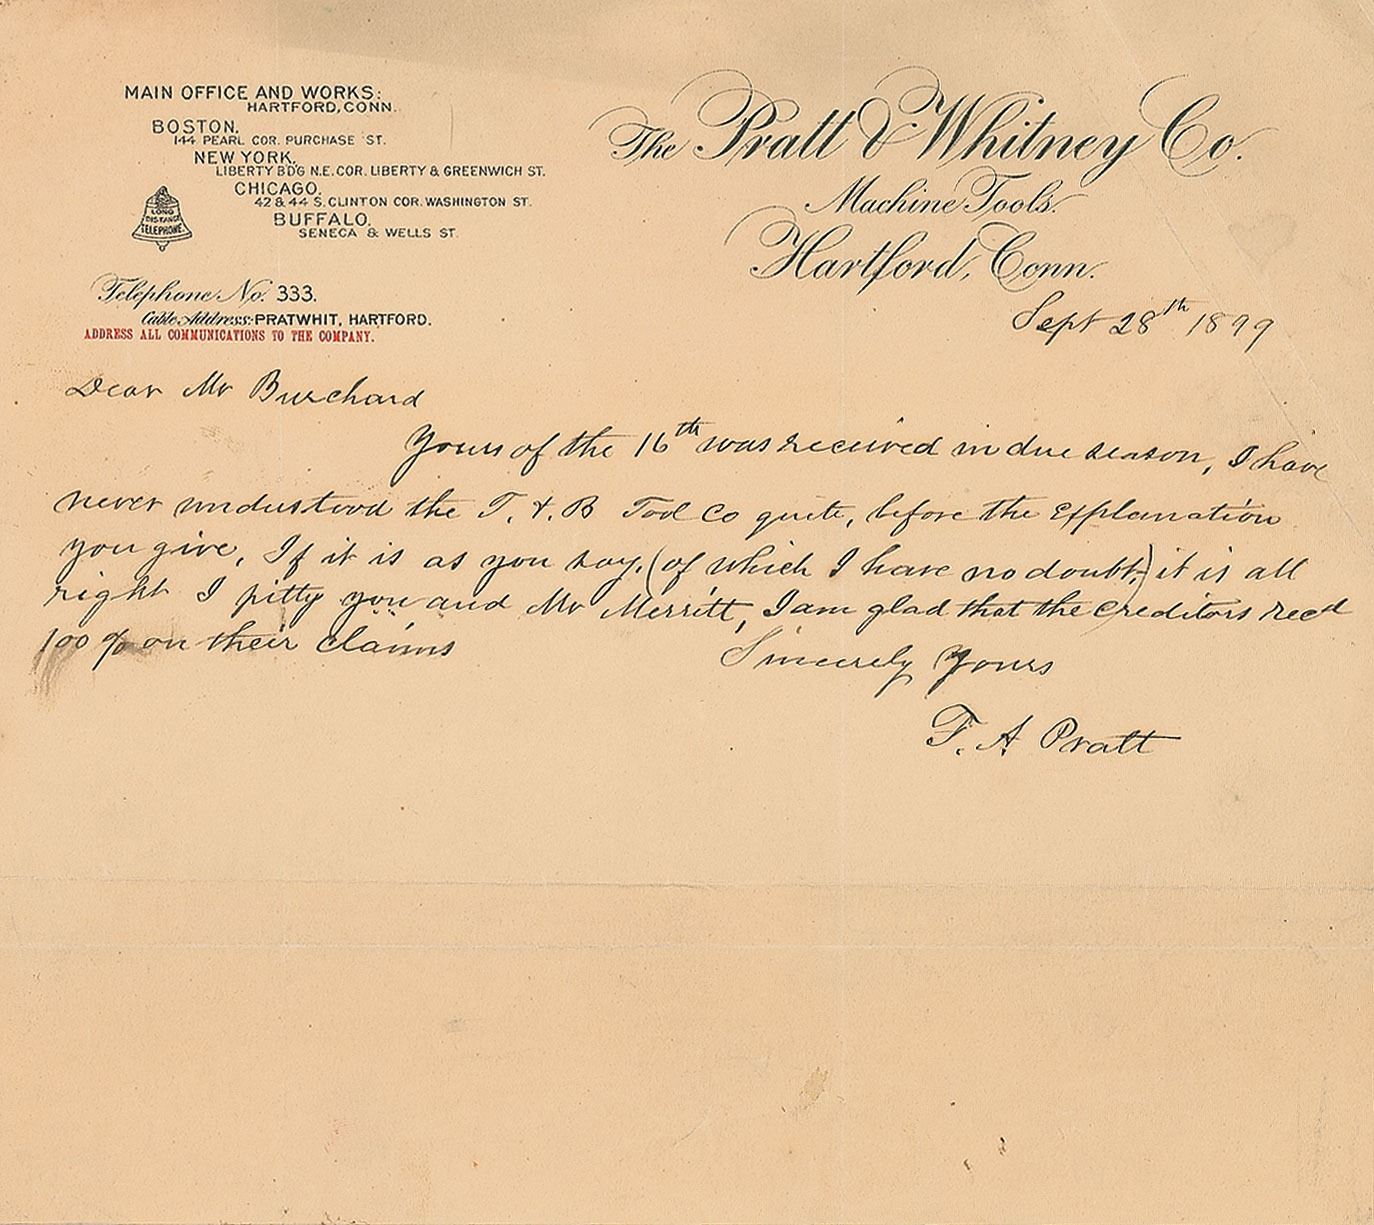 MAIN OFFICE AND WORKS:
HARTFORD, CONN.
BOSTON,
144 PEARL COR. PURCHASE ST.
NEW YORK,
LIBERTY BD'G N.E. COR. LIBERTY & GREENWICH ST.
CHICAGO,
42 & 44 S. CLINTON COR. WASHINGTON ST.
BUFFALO,
SENECA & WELLS ST.
LONG
DISTANCE
TELEPHONE.
Telephone No. 333.
Cable Address: PRATWHIT, HARTFORD.
ADDRESS ALL COMMUNICATIONS TO THE COMPANY.
The Pratt & Whitney Co.
Machine Tools.
Hartford, Conn.
Sept 28th 1899
Dear Mr Burchard
Yours of the 16th was received in due season, I have
never understood the T. & B Tool Co quite, before the Explanation
you give, If it is as you say, (of which I have no doubt,) it is all
right I pitty you and Mr Merritt, I am glad that the creditors recd
100 % on their claims
Sincerely Yours
F. A Pratt